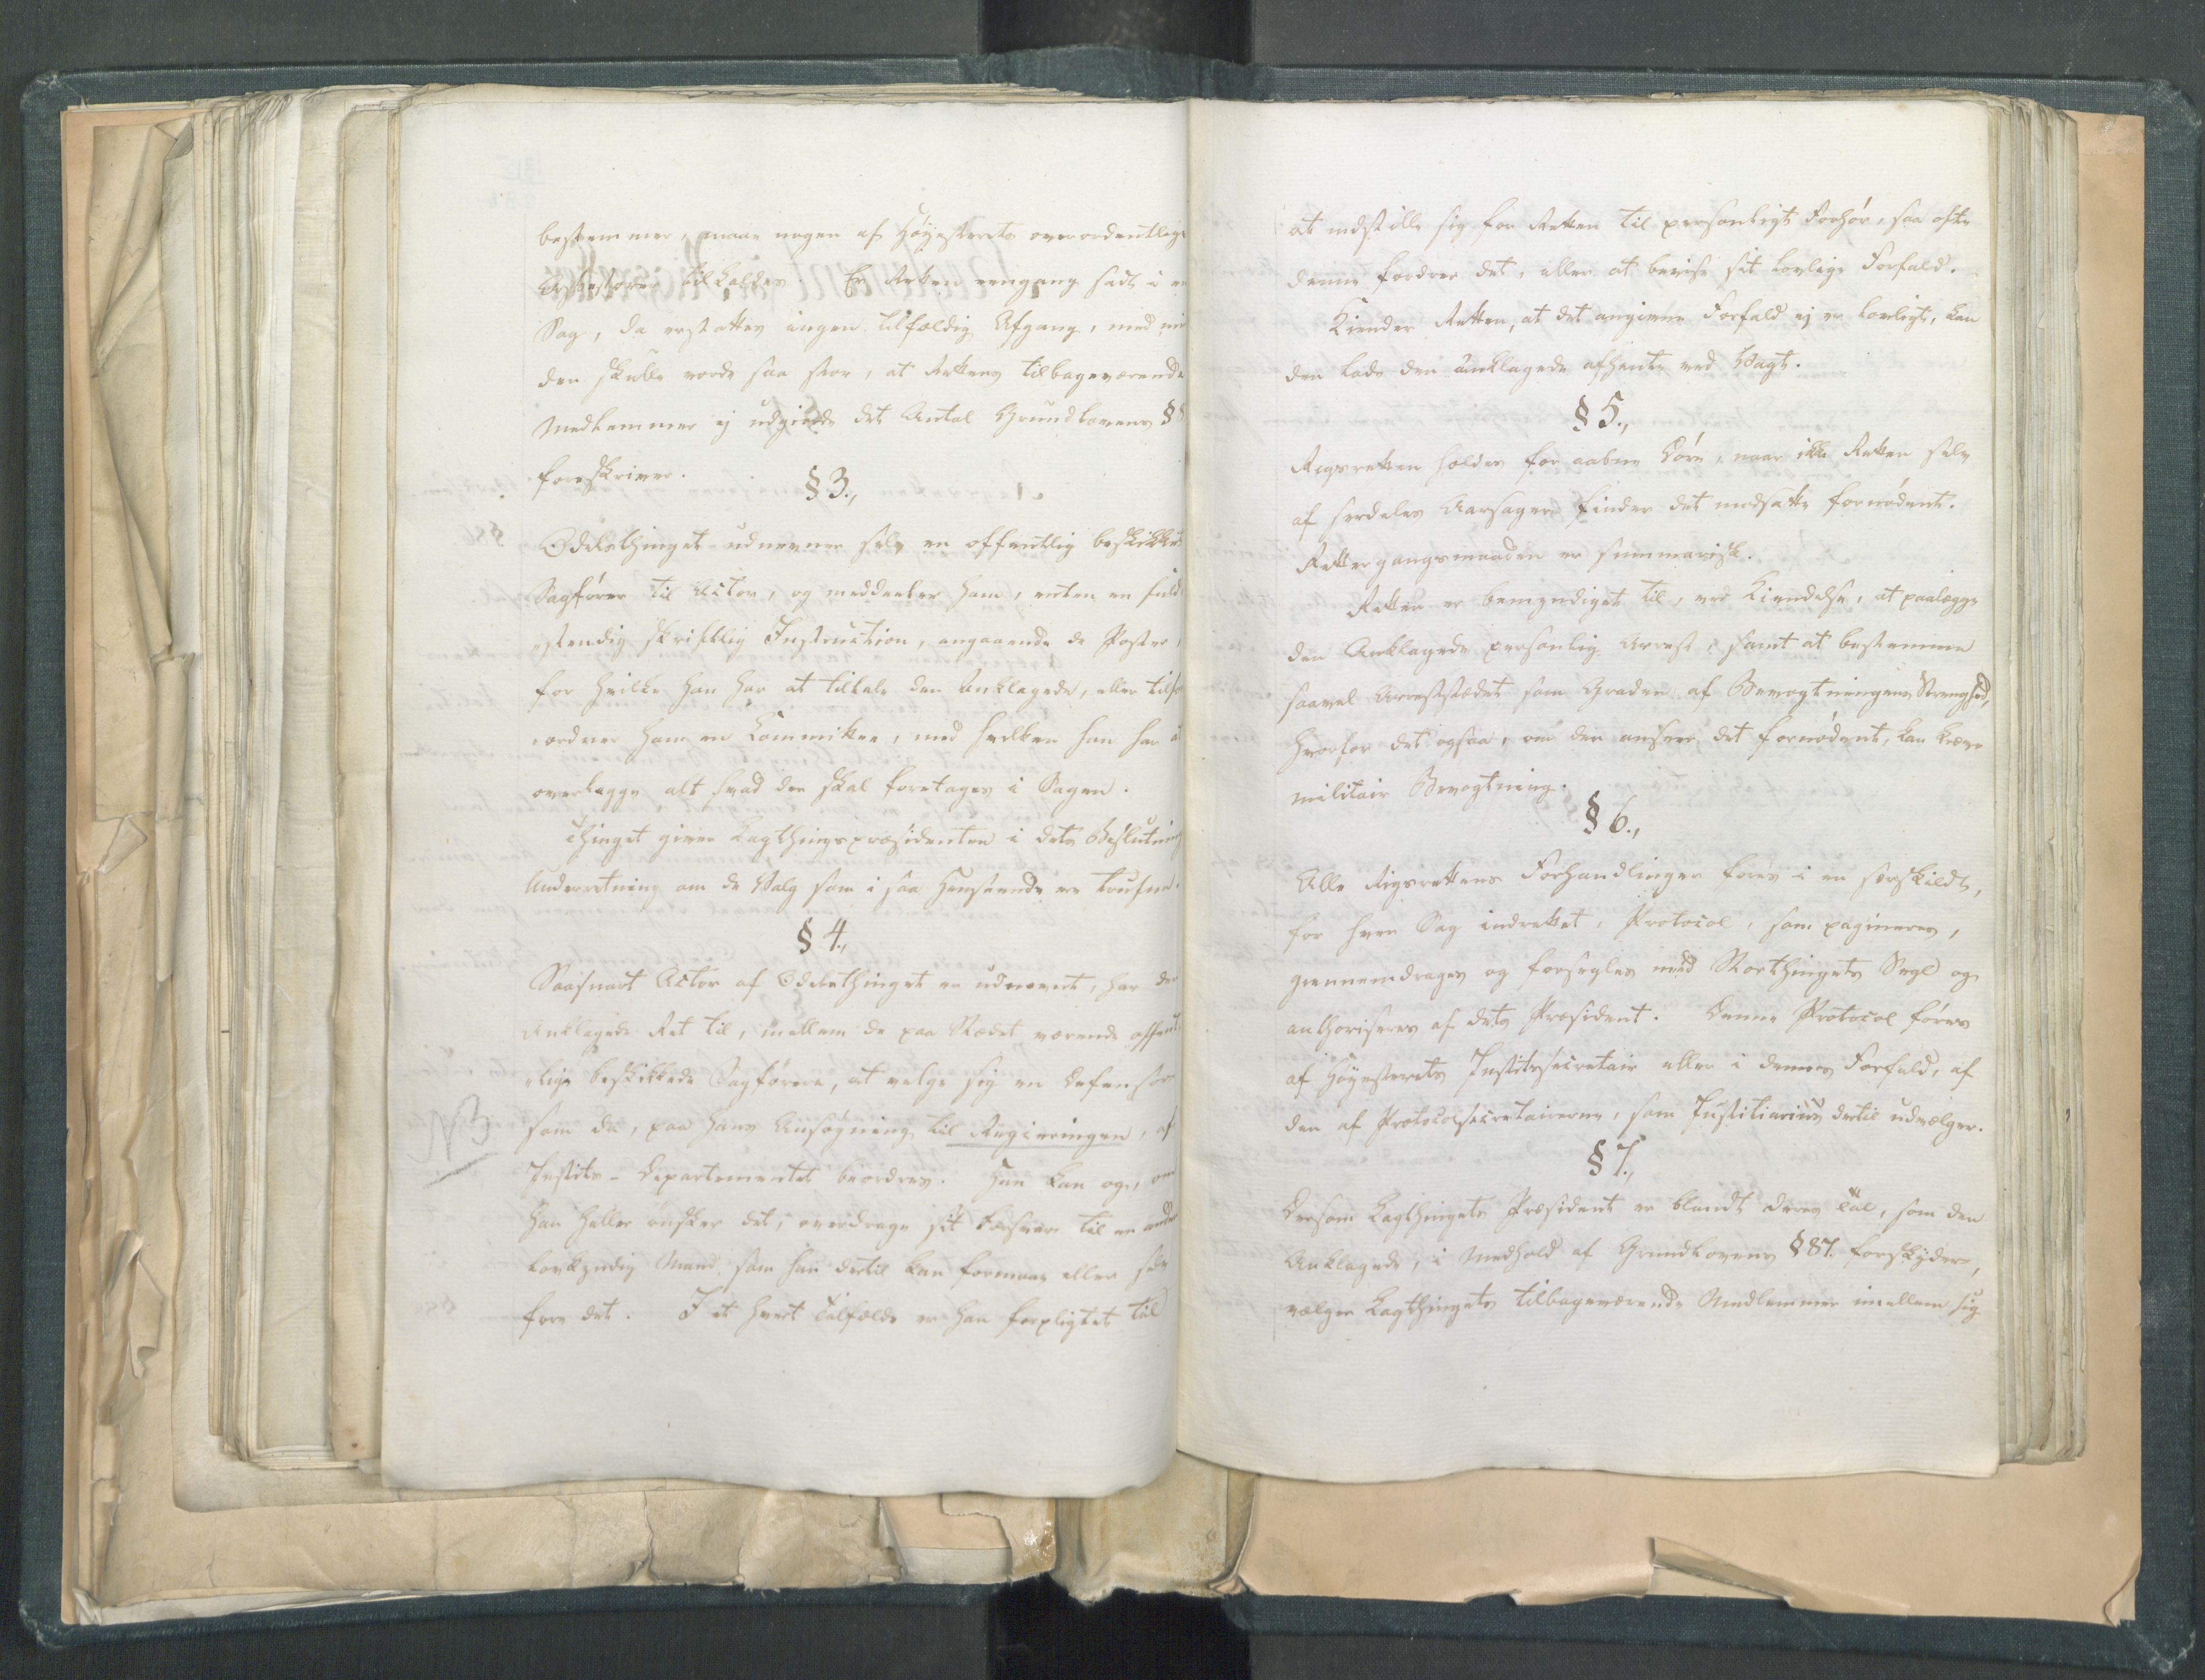 bestemmer, maae nogen af Høyesterets overordentlige
Assessorer tilkaldes. Er Retten eengang sadt i en
Sag, da erstattes ingen tilfældig Afgang, med mindre
den skulle vorde saa stor, at Rettens tilbageværende
Medlemmer ej udgiøre det Antal Grundlovens § 8
foreskriver.
§ 3.,
Odelsthinget udnevner selv en offentlig beskikket
Sagfører til Actor, og meddeeler ham, enten en fuld
stendig skriftlig Instruction, angaaende de Poster,
for hvilke han har at tiltale den Anklagede, eller tilfor
ordner ham en Committee, med hvilken han har at
overlægge alt hvad der skal foretages i Sagen.
Thinget giver Lagthingspræsidenten i dets Beslutning
Underretning om de Valg som i saa Henseende ere trufne.
§ 4.,
Saasnart Actor af Odelsthinget er udnevnt, har den
Anklagede Ret til, mellem de paa Stædet værende offent
lige beskikkede Sagførere, at velge sig en Defensor
NB
som da, paa hans Ansøgning til Regieringen, af
Justits-Departementet beordres. Han kan og, om
han heller ønsker det, overdrage sit Forsvar til en anden
lovkyndig Mand, som han dertil kan formaae eller selv
føre det. I et hvert Tilfælde er han forpligtet til
at indstille sig for Retten til personligt Forhør, saa ofte
denne fordrer det, eller at bevise sit lovlige Forfald.
Kiender Retten, at det angivne Forfald ej er lovligt, kan
den lade den Anklagede afhente ved Vagt.
§ 5.,
Rigsretten holdes for aabne Døre, naar ikke Retten selv
af serdeles Aarsager finder det modsatte fornødent.
Rettergangsmaaden er summarisk.
Retten er bemyndiget til, ved Kiendelse, at paalægge
den Anklagede personlig Arrest, samt at bestemme
saavel Arreststædet som Graden af Bevogtningens Strenghed,
hvorfor det ogsaa, om den anseer det fornødent, kan kræve
militair Bevogtning.
§ 6.,
Alle Rigsrettens Forhandlinger føres i en særskildt,
for hver Sag indrettet, Protocol, som pagineres,
giennemdrages og forsegles med Storthingets Segl og
authoriseres af dets Præsident. Denne Protocol føres
af Høyesterets Justitssecretair eller i dennes Forfald, af
den af Protocolsecretairerne, som Justitiarius dertil udvælger.
§ 7.,
Dersom Lagthingets Præsident er blandt deres Tal, som den
Anklagede, i Medhold af Grundlovens § 87. forskyder,
vælger Lagthingets tilbageværende Medlemmer imellem sig